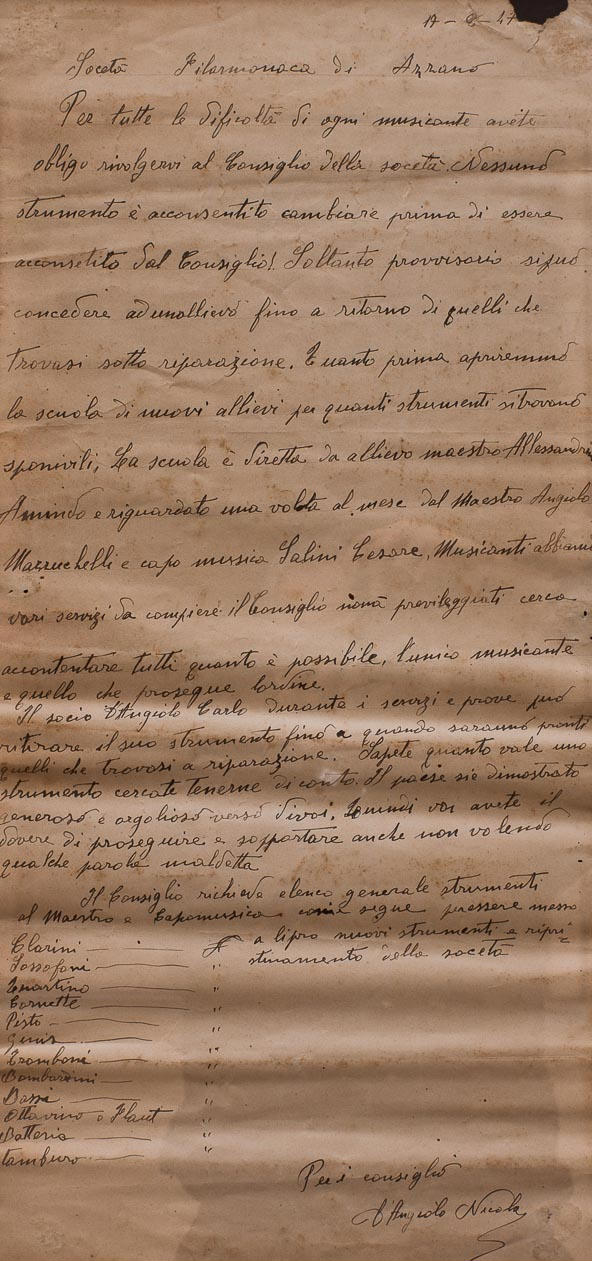 Società Filarmonaca di Azzano
Per tutte le dificoltà di ogni musicante avete
obligo rivolgervi al Consiglio della società. Nessuno
strumento è acconsentito cambiare prima di essere
acconsetito dal Consiglio! Soltanto provvisorio sipuò
concedere adunallievo fino a ritorno di quelli che
trovasi sotto riparazione. Quanto prima apriremmo
la scuola di nuovi allievi per quanti strumenti sitrovano
sponivili, La scuola è diretta da allievo maestro Allessandri
Amindo e riguardato una volta al mese dal Maestro Angiolo
Mazzuchelli e capo musica Salini Cesare, Musicanti abbiamo
vari servizi da compiere il Consiglio nonà previleggiati cerca
accontentare tutti quanto è possibile, l'unico musicante
e quello che prosegue lordine.
Il socio D'Angiolo Carlo durante i servizi e prove può
ritirare il suo strumento fino a quando saranno pronti
quelli che trovasi a riparazione. Sapete quanto vale uno
strumento cercate tenerne diconto. Il paese sie dimostrato
generoso e orgolioso verso divoi. Quindi voi avete il
dovere di proseguire e soppartare anche non volendo
qualche parola maldetta
Il Consiglio richiede elenco generale strumenti
al Maestro e Capomusica come segue pressere messo
a lipro nuovi strumenti e ripri=
stinamento della società
Clarini
Sossofoni "
Quartino "
Cornette "
Pisto "
Genis "
Tromboni "
Bombardini "
Bassi "
Ottavino o Flaut "
Batteria "
tamburo "
Peri consiglio
D'Angiolo Nicola